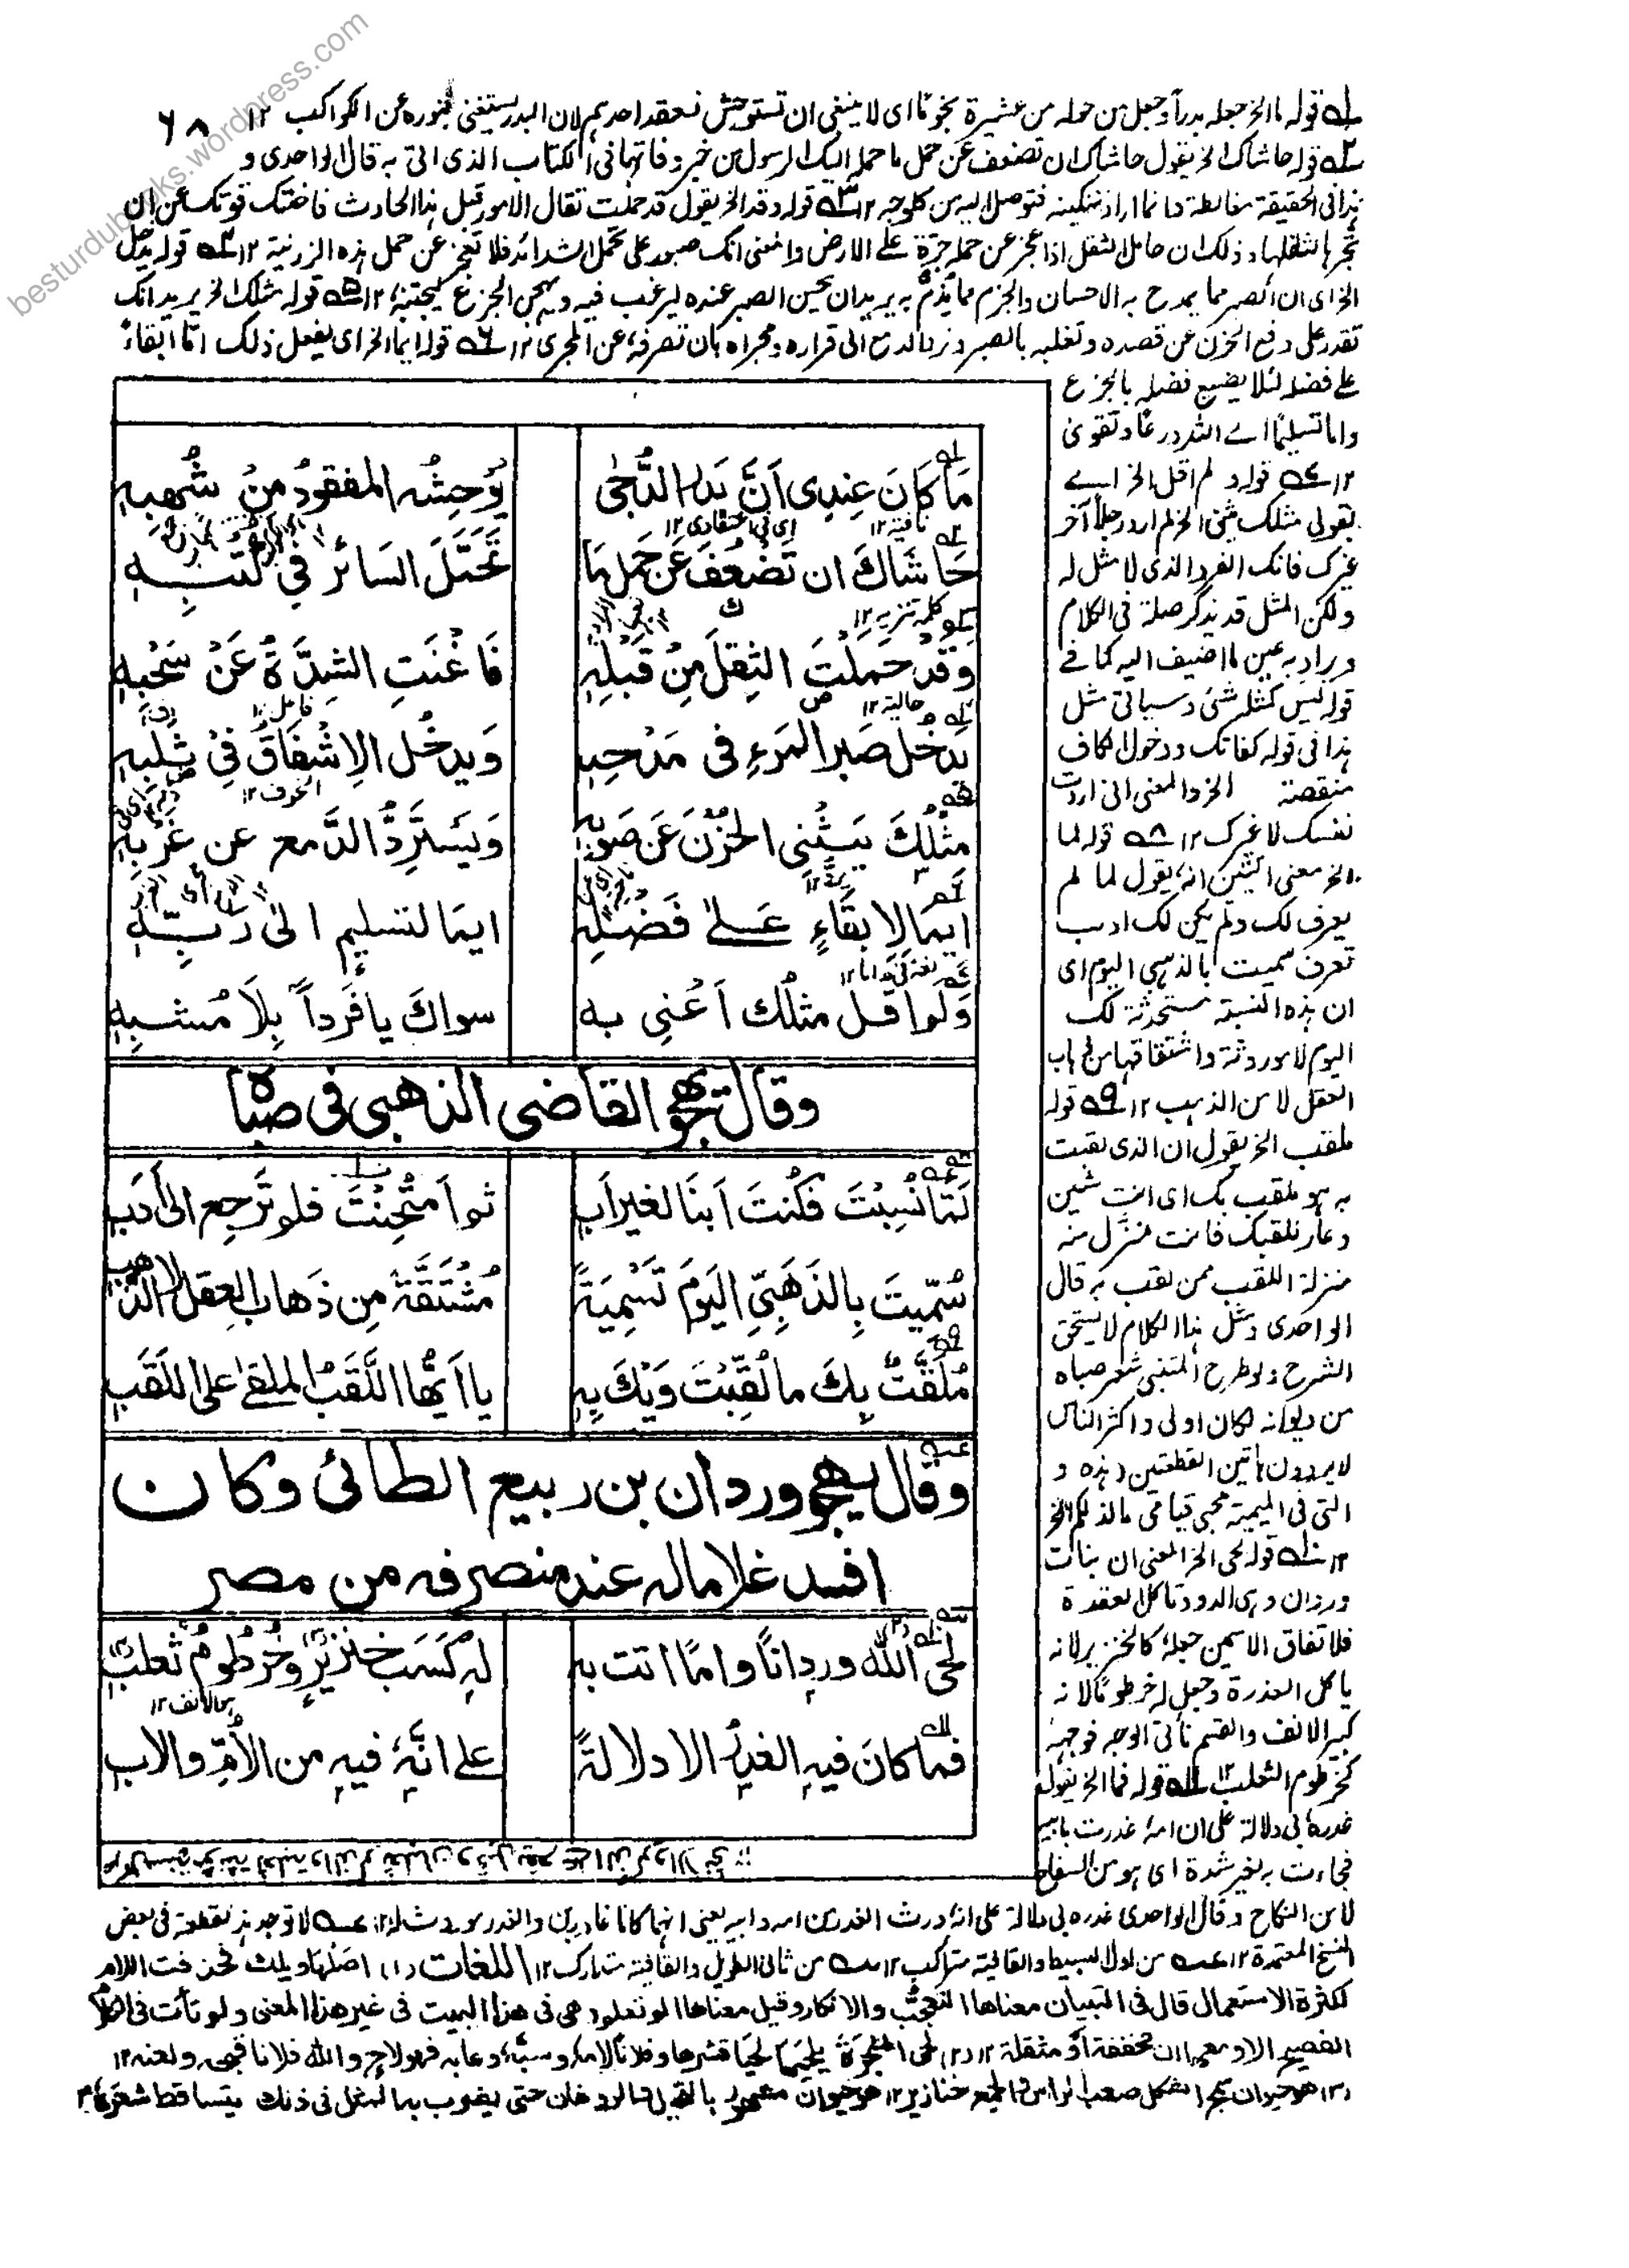 besturdubooks.wordpress.com
٦٨
١ه قوله ما الخ جعله بدراً وجعل من حوله من عشيرة نجومًا اى لا ينبغى ان تستوحش لفقد احدهم لان البدر يستغنى بنوره عن الكواكب ١٢
٢ه قوله حاشاك الخ يقول حاشاك ان تضعف عن حمل ما حمله اليك الرسول من خبر وفاتها فى الكتاب الذى اتى به قال الواحدى و
هذا فى الحقيقة مغالطة وانما اراد تسكينه فتوصل اليه من كل وجه ١٢ ٣ه قوله وقد الخ يقول قد حملت ثقال الامور قبل هذا الحادث فاغنتك قوتك عن ان
تجرها لثقلها وذلك ان حامل الثقل اذا عجز عن حمله جرّه على الارض والمعنى انك صبور على تحمل الشدائد فلا تعجز عن حمل هذه الرزية ١٢ ٤ه قوله يدخل
الخ اى ان الصبر مما يمدح به الاحسان والجزم مما يذمّ به يريد ان يحسن الصبر عنده ليرغب فيه ويهجن الجزع ليجتنبه ١٢ ٥ه قوله مثلك الخ يريد انك
تقدر على دفع الحزن عن قصده وتغلبه بالصبر وترد الدمع الى قراره ومجراه بان تصرفه عن المجرى ١٢ ٦ه قوله ايما الخ اى يفعل ذلك اما ابقاءً
على فضله لئلا يضيع فضله بالجزع
واما تسليمًا الے اللہ ورعًا وتقوى
١٢ ٧ه قوله ولم اقل الخ اے
بقولى مثلك يثنى الخ لم ارد رجلاً آخر
غيرك فانك الفرد الذى لا مثل له
ولكن المثل قد يذكر صلة فى الكلام
ويراد به عين ما اضيف اليه كما فے
قوله ليس كمثله شئ وسياتى مثل
هذا فى قوله كفاتك ودخول الكاف
منقصة الخ والمعنى انى اردت
نفسك لا غيرك ١٢ ٨ه قوله لما
الخ معنى البيتين انه يقول لما لم
يعرف لك ولم يكن لك ادب
تعرف سميت بالذهبى اليوم اى
ان هذه النسبة مستحدثة لك
اليوم لا موروثة واشتقاقها من ذهاب
العقل لا من الذهب ١٢ ٩ه قوله
ملقب الخ يقول ان الذى لقبت
به هو ملقب بك اى انت شين
وعار للقبك فانت منزل منه
منزلة اللقب ممن لقب به قال
الواحدى ومثل هذا الكلام لا يستحق
الشرح ولو طرح المتنبى شعر صباه
من ديوانه لكان اولى واكثر الناس
لا يروون هاتين القطعتين هذه و
التى فى الميمية محبى قيامى ما لذلكم الخ
١٢ ١٠ه قوله لحى الخ المعنى ان بنات
وردان وهى الدود تاكل العذرة
فلاتفاق الاسمين جعله كالخنزير لانه
ياكل العذرة وجعل له خرطومًا لانه
كبير الانف والفم ناتى الوجه فوجهه
كخرطوم الثعلب ١٢ ١١ه قوله فما الخ يقول
غدره بى دلالة على ان امه غدرت بابيه
فجاءت به لغير شدة اى هو من السفاح
مَا كَانَ عِندِى اَنَّ بَدرَ الدُّجٰى يُوحِشُه المفقودُ مِنْ شُهبِهٖ
نافية ١٢ اى فى اعتقادى ١٢
حَاشَاكَ ان تَضْعُفَ عَن حَملِ مَا تَحَمَّلَ السَائرُ فِي كُتبِهٖ
كلمة تنزيه ١٢
وَقَدْ حَملْتَ الثِقلَ مِنْ قَبْلِهٖ فَاَغْنَتِ الشِدَّةُ عَنْ سَحْبِهٖ
حالية ١٢ فاعل
يَدْخُل صَبرُ المَرءِ فى مَدْحِهٖ وَيدخُل الاِشْفَاقُ فِيْ ثلبِهٖ
الخوف ١٢
مثْلُكَ يَثْنِى الحُزْنَ عَن صَوبِهٖ وَيَستَرِدُّ الدَّمع عن غَرْبِهٖ
ايمَا لاِبقَاءٍ عَلےٰ فَضْلِهٖ ايمَا لتسليمٍ الىٰ رَبِّهٖ
لغة فى اما ١٢
وَلَم اقُل مثلُك اَعْنِى به سواكَ يا فَرداً بِلَا مُشبِهٖ
وقال يهجو القاضى الذهبى فى صباه
لَمَّا نُسِبْتَ فكُنتَ اَبنًا لغيراَبٍ ثم اُمتُحِنْتَ فلم تَرجِع الىٰ اَدَبِ
سُمِّيتَ بِالذَهَبِيِّ اليَومَ تَسْمِيَةً مُشتَقَّةً مِن ذَهابِ العِقلِ لا الذَّهبِ
مُلَقَّبٌ بِكَ ما لُقِّبْتَ وَيْكَ بِهٖ يا اَيُّها اللَّقَبُ الملقىٰ على اللَقَبِ
وقال يهجو وردان بن ربيع الطائى وكان
افسد غلاما له عند منصرفه من مصر
لحى اللّٰه وردانًا وامًا اتت به لهٖ كَسَبُ خنزيرٍ وخُرطُومُ ثعلبِ
١٢ الانف
فما كانَ فيهِ الغدرُ الا دلالةً علے انّهٗ فيهِ من الأمِّ والابِ
لا من النكاح وقال الواحدى غدره بى دلالة على انه ورث الغدر من امه وابيه يعنى انهما كانا غادرين والغدر موروث له ١٢ عه لا توجد هذه القطعة فى بعض
النسخ المعتمدة ١٢ عه من اول البسيط والقافية متراكب ١٢ سه من ثانى الطويل والقافية متدارك ١٢ اللغات (١) اصلها ويلك فحذفت اللام
لكثرة الاستعمال قال فى التبيان معناها التعجب والانكار وقيل معناها الم تعلم وهى فى هذا البيت فى غير هذا المعنى ولم تأت فى الكلام
الفصيح الا ومعها ان مخففة او مثقلة ١٢ (٢) لحى الشجرةَ يلحيها لحيًا قشرها وفلانًا لامه وسبّه وعابه فهو لاحٍ والله فلانا قبحه ولعنه ١٢